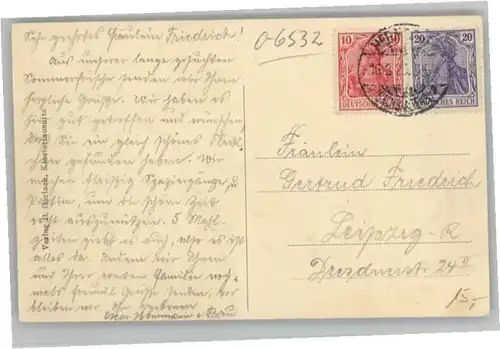 Sehr geehrtes Fräulein Friedrich!
Aus unserer lange gesuchten
Sommerfrische senden wir Ihnen
herzliche Grüsse. Wir haben es
hier gut getroffen und wünschen,
dass Sie ein gleich schönes Fleck-
chen gefunden haben. Wir
machen fleissig Spaziergänge, u.
Partien, um die schöne Zeit
recht auszunützen. 5 Mahl-
zeiten giebt es auch, also es ist
alles da. Indem wir Ihnen
und Ihrer werten Familie noch-
mals freundl. Grüsse senden,
bleiben wir Ihr
u. Frau
Verlag H. Gerlach, Klosterlausnitz
0-6532
10
DEUTSCHES
20
20
REICH
Fräulein
Gertrud Friedrich
Leipzig-R
Dresdnerstr. 24
15,-